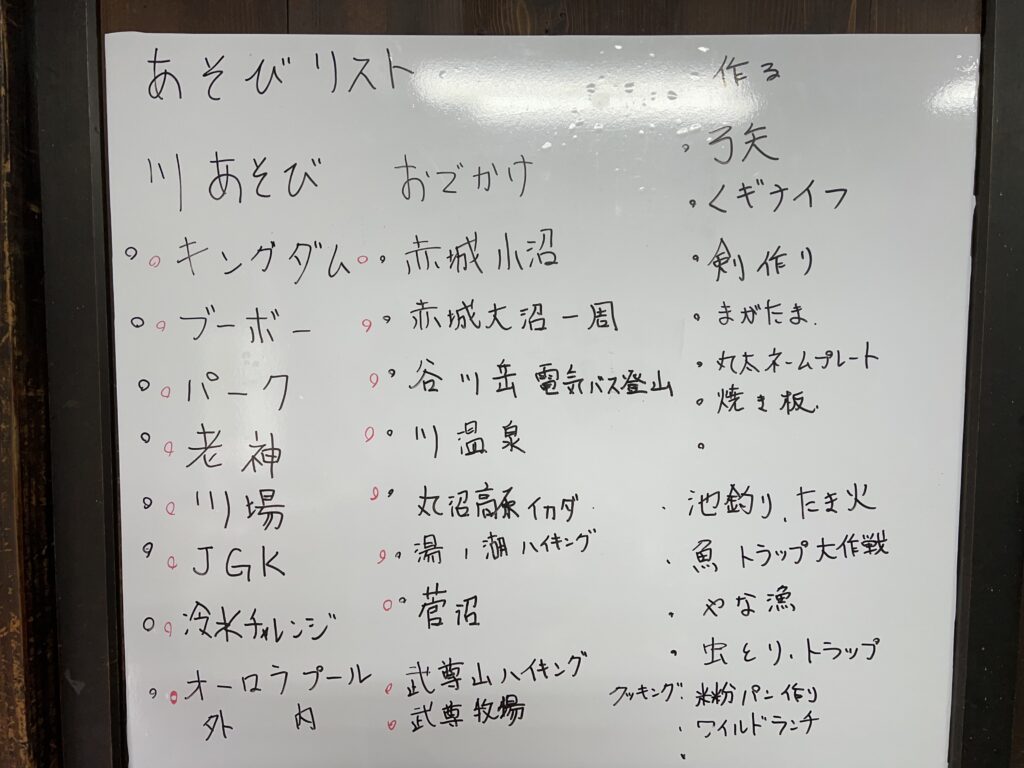 あそびリスト
川あそび
キングダム
ブーボー
パーク
老神
川場
JGK
冷水チャレンジ
オーロラプール
外 内
おでかけ
赤城小沼
赤城大沼一周
谷川岳 電気バス登山
川温泉
丸沼高原イカダ
湯ノ湖ハイキング
菅沼
武尊山ハイキング
武尊牧場
作る
弓矢
くギナイフ
剣作り
まがたま.
丸太ネームプレート
焼き板.
池釣り、たき火
魚トラップ大作戦
やな漁
虫とり、トラップ
クッキング: 米粉パン作り
ワイルドランチ